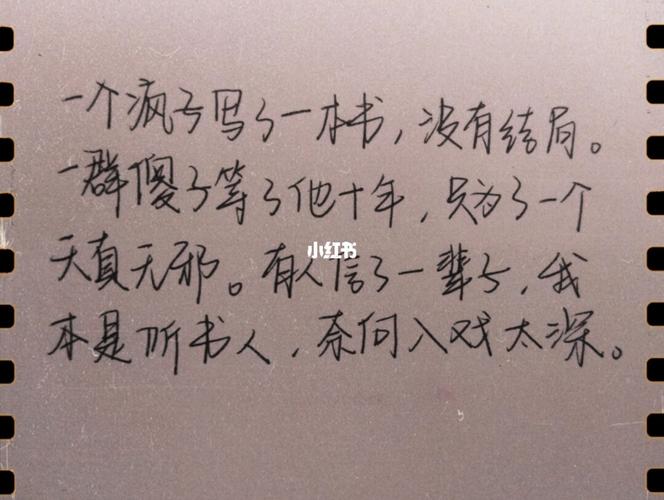 一个疯子写了一本书，没有结局。
一群傻子等了他十年，只为了一个
天真无邪。有人信了一辈子，我
本是听书人，奈何入戏太深。
小红书